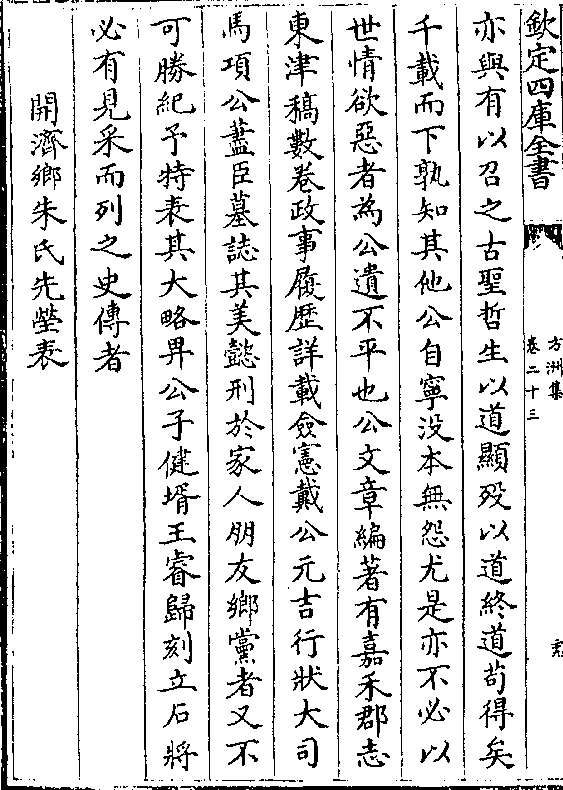 欽定四庫全書
方洲集
卷二十三
亦與有以召之古聖哲生以道顯殁以道終道苟得矣
千載而下孰知其他公自寧没本無怨尤是亦不必以
世情欲惡者為公遺不平也公文章編著有嘉禾郡志
東津稿數巻政事履歴詳載僉憲戴公元吉行狀大司
馬項公藎臣墓誌其美懿刑於家人朋友鄉黨者又不
可勝紀予特表其大略畀公子健壻王睿歸刻立石將
必有見采而列之史傳者
開濟鄉朱氏先塋表